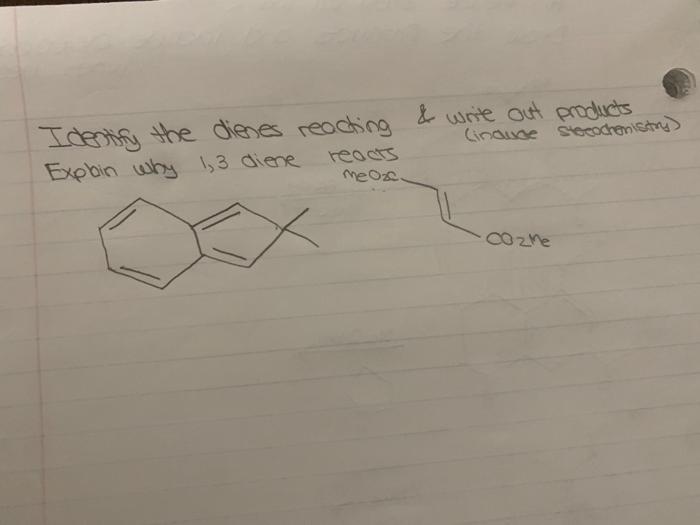 Identify the dienes reacting & write out products
(include stereochemistry)
Explain why 1,3 diene reacts
MeO2C
CO2Me